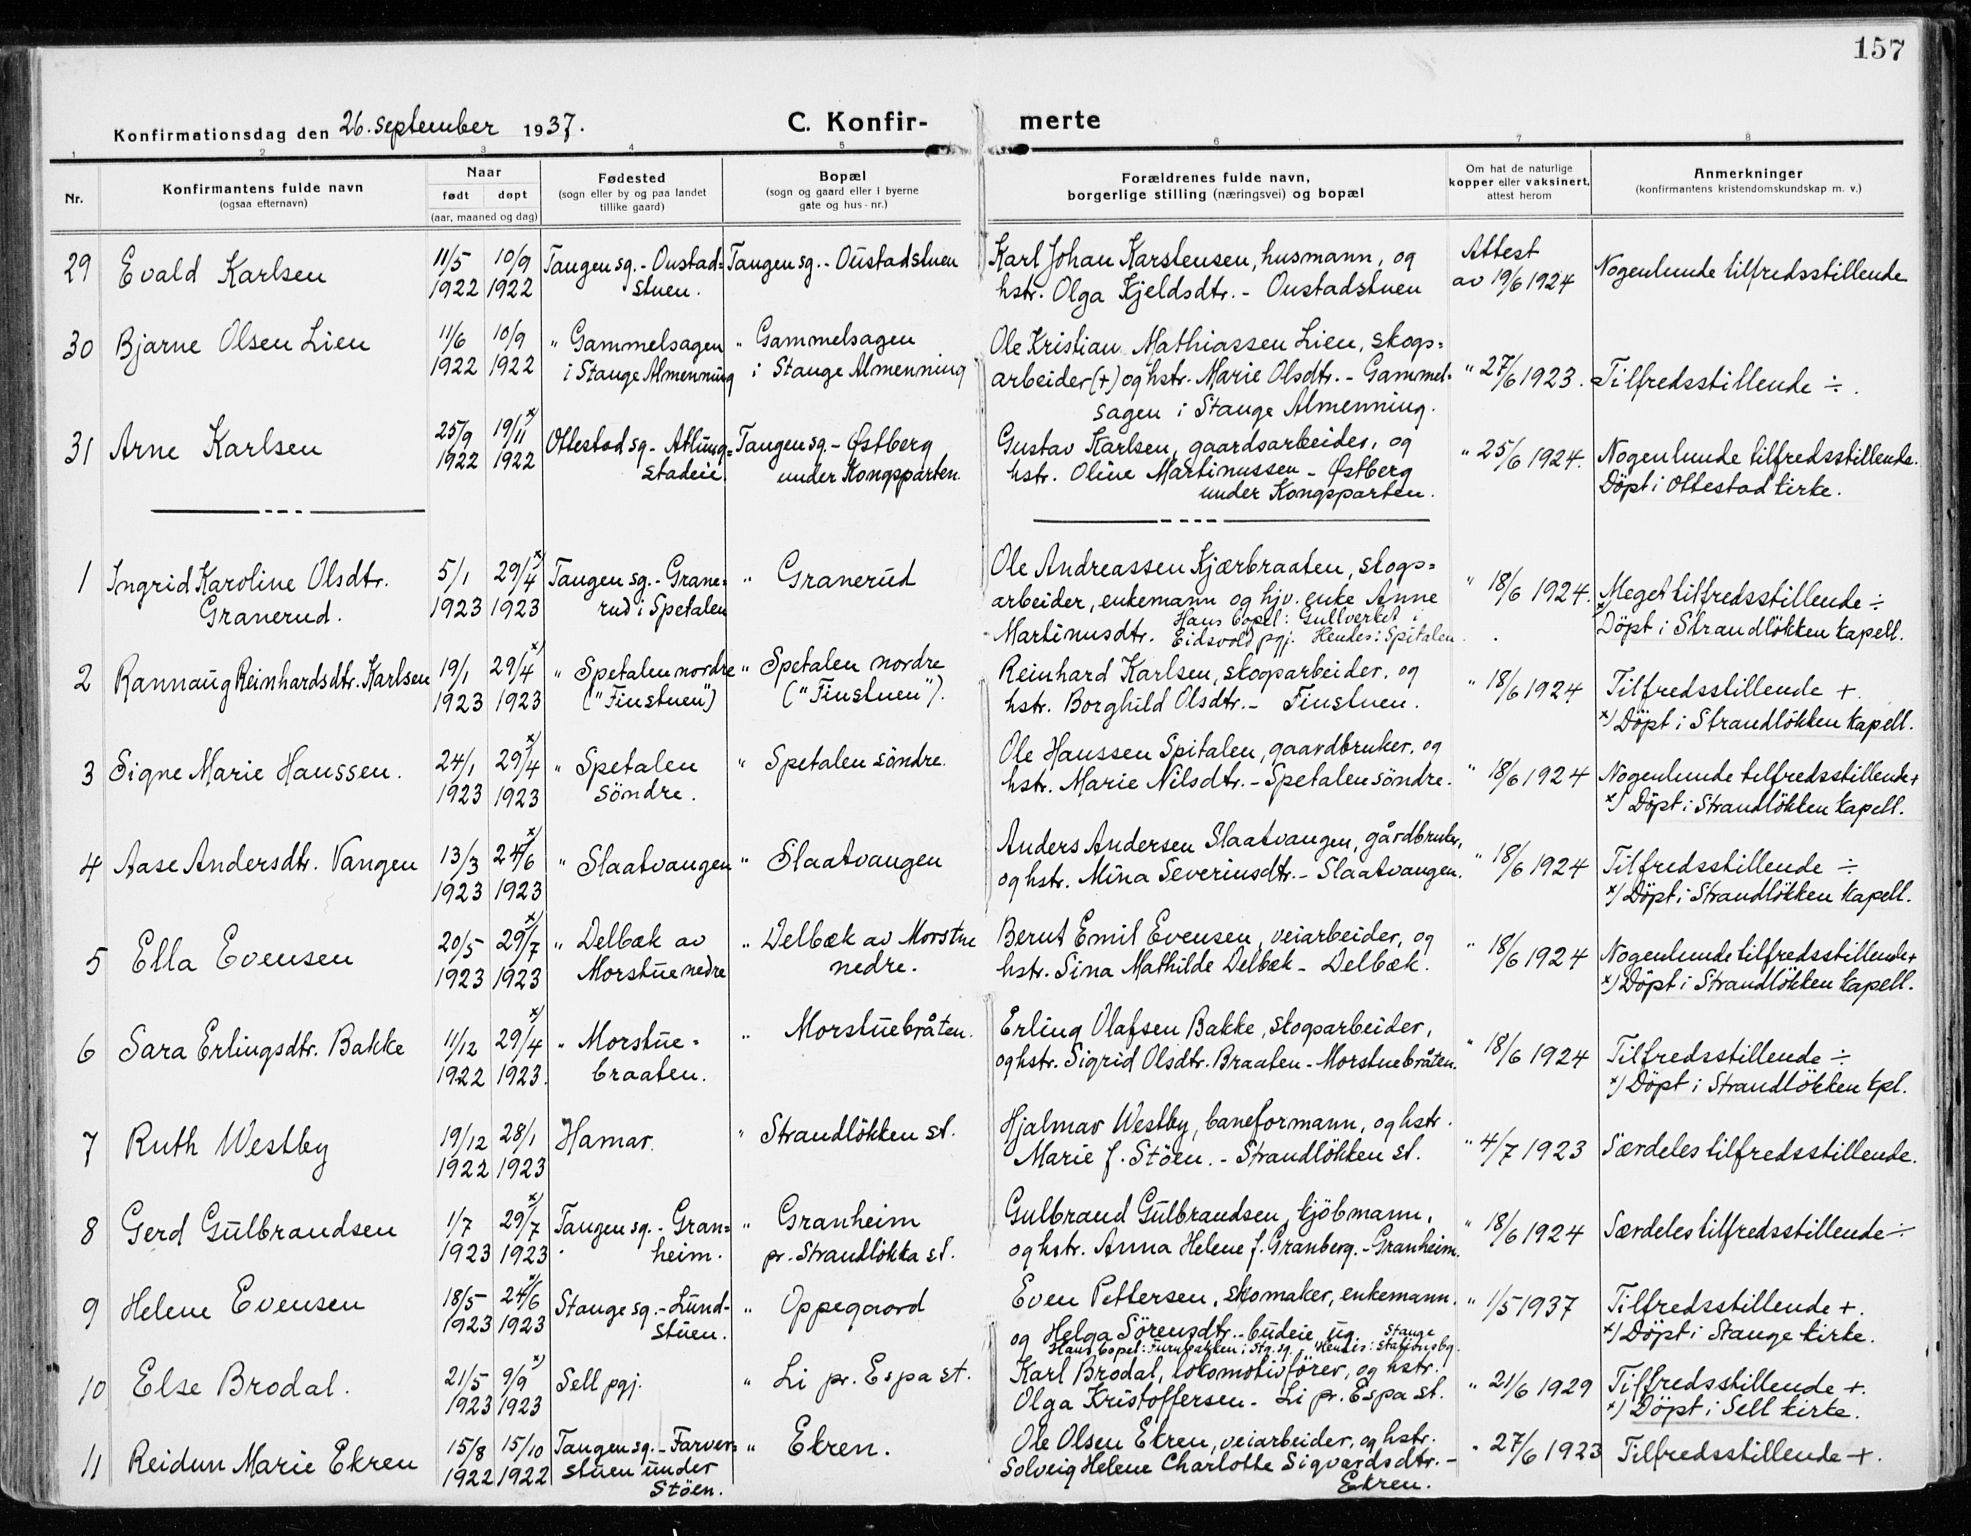 157
Konfirmationsdag den 26. september 1937.
C. Konfir- merte
1 2 3 4 5 6 7 8
Nr.
Konfirmantens fulde navn
(ogsaa efternavn)
Naar
født døpt
(aar, maaned og dag)
Fødested
(sogn eller by og paa landet
tillike gaard)
Bopæl
(sogn og gaard eller i byerne
gate og hus-nr.)
Forældrenes fulde navn,
borgerlige stilling (næringsvei) og bopæl
Om hat de naturlige
kopper eller vaksinert,
attest herom
Anmerkninger
(konfirmantens kristendomskundskap m. v.)
29 Evald Karlsen 11/5 1922 10/9 1922 Tangen sg. - Oustad=
stuen. Tangen sg. - Oustadstuen Karl Johan Karstensen, husmann, og
hstr. Olga Kjeldsdtr. - Oustadstuen Attest
av 19/6 1924 Nogenlunde tilfredsstillende
30 Bjarne Olsen Lien 11/6 1922 10/9 1922 " Gammelsagen
i Stange Almenning " Gammelsagen
i Stange Almenning Ole Kristian Mathiassen Lien, skogs=
arbeider (+) og hstr. Marie Olsdtr. - Gammel=
sagen i Stange Almenning. " 27/6 1923. Tilfredsstillende ÷.
31 Arne Karlsen 25/9 1922 19/11 x) 1922 Ottestad sg. - Atlung=
stadeie. Tangen sg. - Østberg
under Kongsparten. Gustav Karlsen, gaardsarbeider, og
hstr. Oline Martinussen - Østberg
under Kongsparten. " 25/6 1924. Nogenlunde tilfredsstillende.
Döpt i Ottestad kirke.
1 Ingrid Karoline Olsdtr.
Granerud. 5/1 1923 29/4 x) 1923 Tangen sg. - Grane=
rud i Spetalen " Granerud Ole Andreassen Kjærbraaten, skogs=
arbeider, enkemann og hjv. enke Anne
Martinusdtr. Hans bopel: Gullverket i
Eidsvold pgj. Hendes: Spitalen. " 18/6 1924. Meget tilfredsstillende ÷
x) Döpt i Strandlökken kapell.
2 Rannaug Reinhardsdtr. Karlsen 19/1 1923 29/4 x) 1923 " Spetalen nordre
("Finstuen") " Spetalen nordre
("Finstuen"). Reinhard Karlsen, skogsarbeider, og
hstr. Borghild Olsdtr. - Finstuen. " 18/6 1924 Tilfredsstillende +
x) Döpt i Strandlökken kapell.
3 Signe Marie Hanssen. 24/1 1923 29/4 x) 1923 " Spetalen
söndre. " Spetalen söndre. Ole Hanssen Spitalen, gaardbruker, og
hstr. Marie Nilsdtr. - Spetalen söndre. " 18/6 1924 Nogenlunde tilfredsstillende +
x) Döpt i Strandlökken kapell.
4 Aase Andersdtr. Vangen 13/3 1923 24/6 x) 1923 " Slaatvangen " Slaatvangen Anders Andersen Slaatvangen, gårdbruker,
og hstr. Mina Severinsdtr. - Slaatvangen. " 18/6 1924 Tilfredsstillende ÷
x) Döpt i Strandlökken kapell.
5 Ella Evensen 20/5 1923 29/7 x) 1923 " Delbæk av
Morstue nedre " Delbæk av Morstue
nedre. Bernt Emil Evensen, veiarbeider, og
hstr. Sina Mathilde Delbæk - Delbæk. " 18/6 1924 Nogenlunde tilfredsstillende +
x) Döpt i Strandlökken kapell.
6 Sara Erlingsdtr. Bakke 11/12 1922 29/4 x) 1923. " Morstue=
braaten. " Morstuebråten. Erling Olafsen Bakke, skogsarbeider,
og hstr. Sigrid Olsdtr. Braaten - Morstuebråten. " 18/6 1924 Tilfredsstillende ÷
x) Döpt i Strandlökken kpl.
7 Ruth Westby 19/12 1922 28/1 1923 Hamar. " Strandlökken st. Hjalmar Westby, baneformann, og hstr.
Marie f. Stöen. - Strandlökken st. " 4/7 1923 Særdeles tilfredsstillende.
8 Gerd Gulbrandsen 1/7 1923 29/7 x) 1923 Tangen sg. - Gran=
heim. " Granheim
pr. Strandlökka st. Gulbrand Gulbrandsen, kjöbmann,
og hstr. Anna Helene f. Granberg. - Granheim. " 18/6 1924 Særdeles tilfredsstillende ÷
9 Helene Evensen 18/5 1923 24/6 x) 1923 Stange sg. - Lund-
stuen. " Oppegaard Even Pettersen, skomaker, enkemann,
og Helga Sörensdtr. - budeie, ug. Stange
Hans bopel: Furubakken i Stg. sg. - Hendes: Stationsbg. " 1/5 1937 Tilfredsstillende +.
x) Döpt i Stange kirke.
10 Else Brodal. 21/5 1923 9/9 x) 1923 Sell pgj. " Li pr. Espa st. Karl Brodal, lokomotivförer, og hstr.
Olga Kristoffersen. - Li pr. Espa st. " 21/6 1929 Tilfredsstillende +.
x) Döpt i Sell kirke.
11 Reidun Marie Ekren 15/8 1922 15/10 1922 Tangen sg. - Farver=
stuen under
Stöen. " Ekren. Ole Olsen Ekren, veiarbeider, og hstr.
Solveig Helene Charlotte Sigvardsdtr. -
Ekren. " 27/6 1923 Tilfredsstillende +.